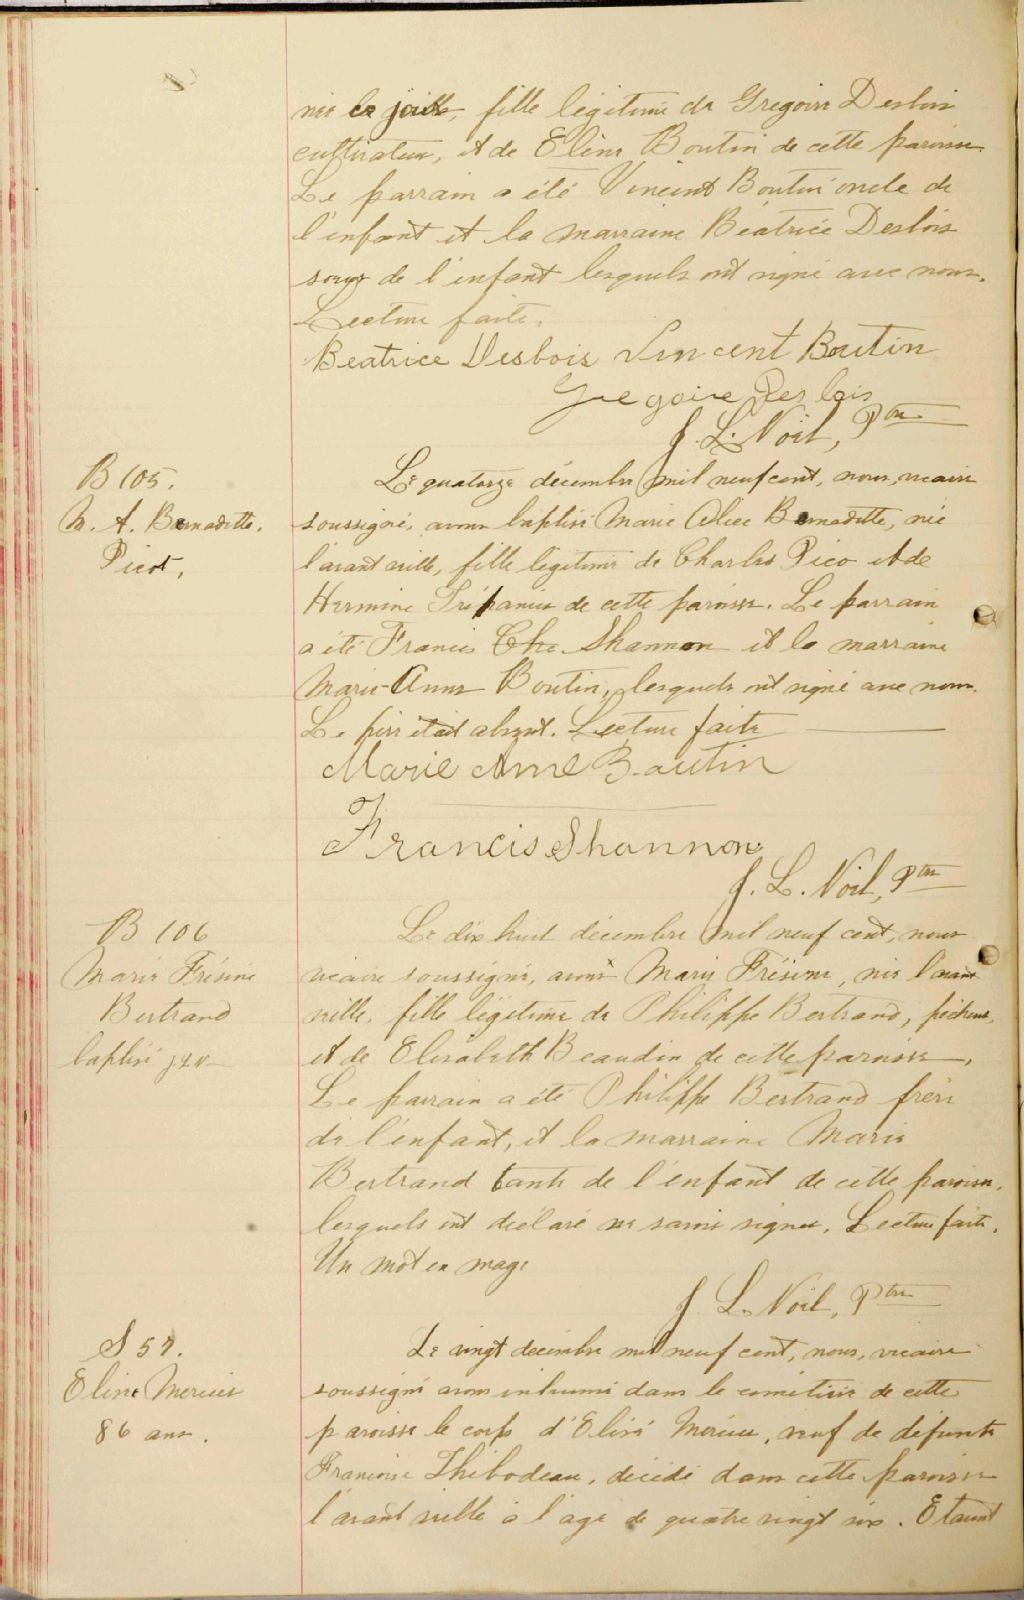 née la veille, fille légitime de Gregoire Desbois
cultivateur, et de Elène Boutin de cette paroisse.
Le parrain a été Vincent Boutin oncle de
l'enfant et la marraine Béatrice Desbois
soeur de l'enfant lesquels ont signé avec nous.
Lecture faite.
Beatrice Desbois Vincent Boutin
Gregoire Desbois
J. L. Noël, Ptre
B 105.
M. A. Bernadette.
Picot,
Le quatorze décembre mil neuf cent, nous, vicaire
soussigné, avons baptisé Marie Alice Bernadette, née
l'avant veille, fille légitime de Charles Pico et de
Hermine Trépanier de cette paroisse. Le parrain
a été Francis Shannon et la marraine
Marie-Anne Boutin, lesquels ont signé avec nous.
Le père était absent. Lecture faite
Marie Anne Boutin
Francis Shannon
J. L. Noël, Ptre
B 106
Marie
Bertrand
baptisé
Le dix huit décembre mil neuf cent, nous
vicaire soussigné, avons x Marie, née l'avant
veille, fille légitime de Philippe Bertrand, pêcheur,
et de Elisabeth Beaudin de cette paroisse,
Le parrain a été Philippe Bertrand frère
de l'enfant, et la marraine Marie
Bertrand tante de l'enfant de cette paroisse,
lesquels ont déclaré ne savoir signer. Lecture faite.
Un mot en marge
J. L. Noël, Ptre
S 57.
Mercier
86 ans.
Le vingt decembre mil neuf cent, nous, vicaire
soussigné avons inhumé dans le cimetière de cette
paroisse le corps d' Mercier, veuf de défunte
Françoise Thibodeau, décédé dans cette paroisse
l'avant veille à l'age de quatre vingt six. Etaient